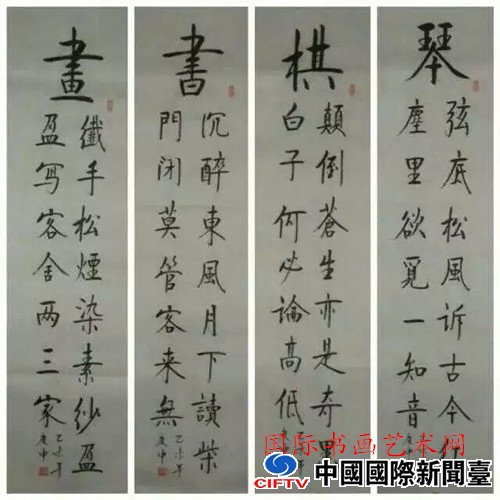 琴
弦底松風訴古今
塵里欲覓一知音
棋
顛倒蒼生亦是奇黑
白子何必論高低
書
沉醉東風月下讀柴
門闭莫管客来無
乙未年
庚申
畫
纖手松煙染素紗盈
盈写客舍两三家
乙未年
庚申
国际书画艺术网
CIFTV 中國國際新聞臺